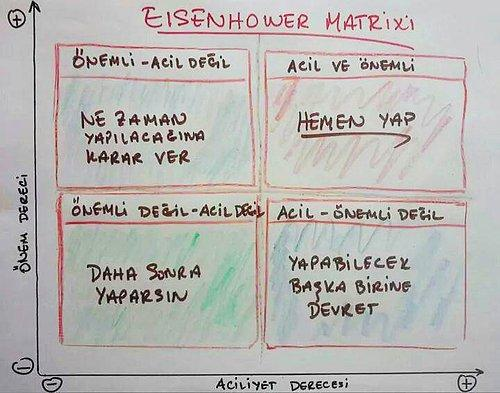 EISENHOWER MATRIXI
ÖNEMLİ - ACİL DEĞİL
NE ZAMAN
YAPILACAĞINA
KARAR VER
ACİL VE ÖNEMLİ
HEMEN YAP
ÖNEMLİ DEĞİL - ACİL DEĞİL
DAHA SONRA
YAPARSIN
ACİL - ÖNEMLİ DEĞİL
YAPABİLECEK
BAŞKA BİRİNE
DEVRET
ÖNEM DERECİ
ACİLİYET DERECESİ